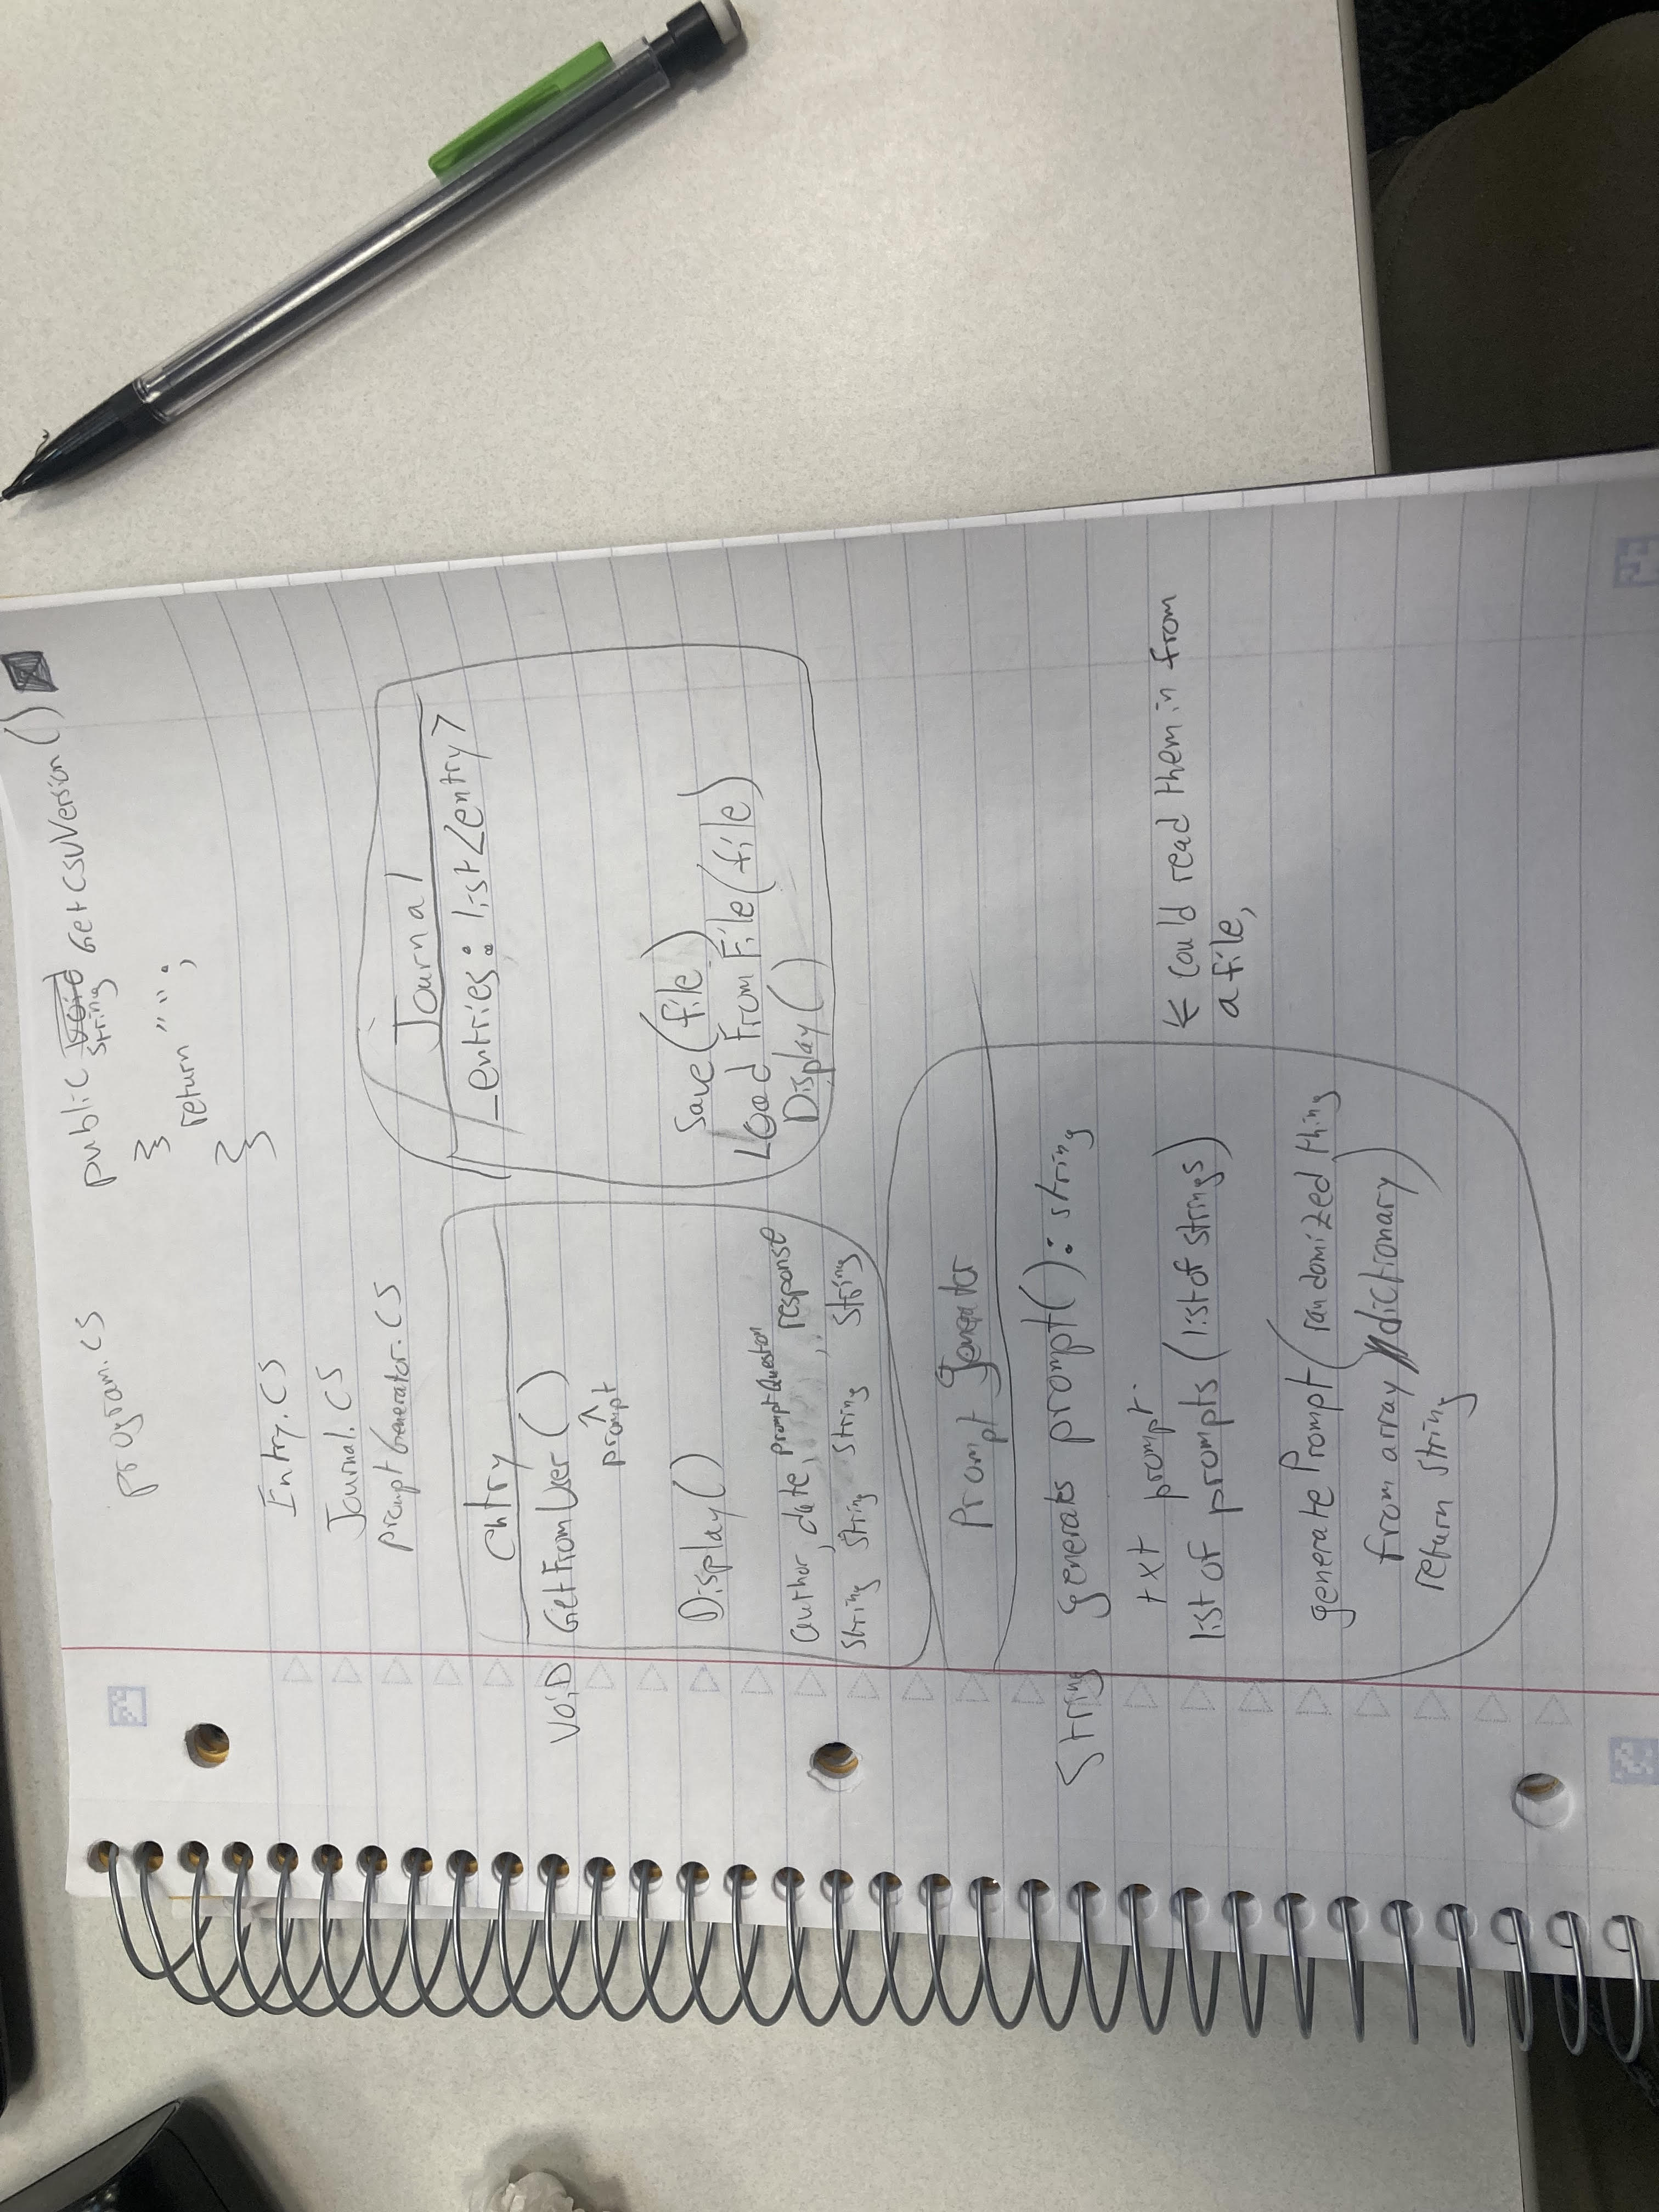 program.cs
public string GetCSVVersion()
{
return "";
}
Entry.CS
Journal.CS
promptGenerator.CS
Entry
VoiD GetFromUser()
^
prompt
Display()
author, date, promptQuestion, response
string string string string
Journal
_entries: list<entry>
Save(file)
Load From File(file)
Display()
Prompt generator
String generates prompt(): string
txt prompt.
list of prompts (list of strings)
generate Prompt (randomized thing
from array // dictionary)
return string
← Could read them in from
a file,